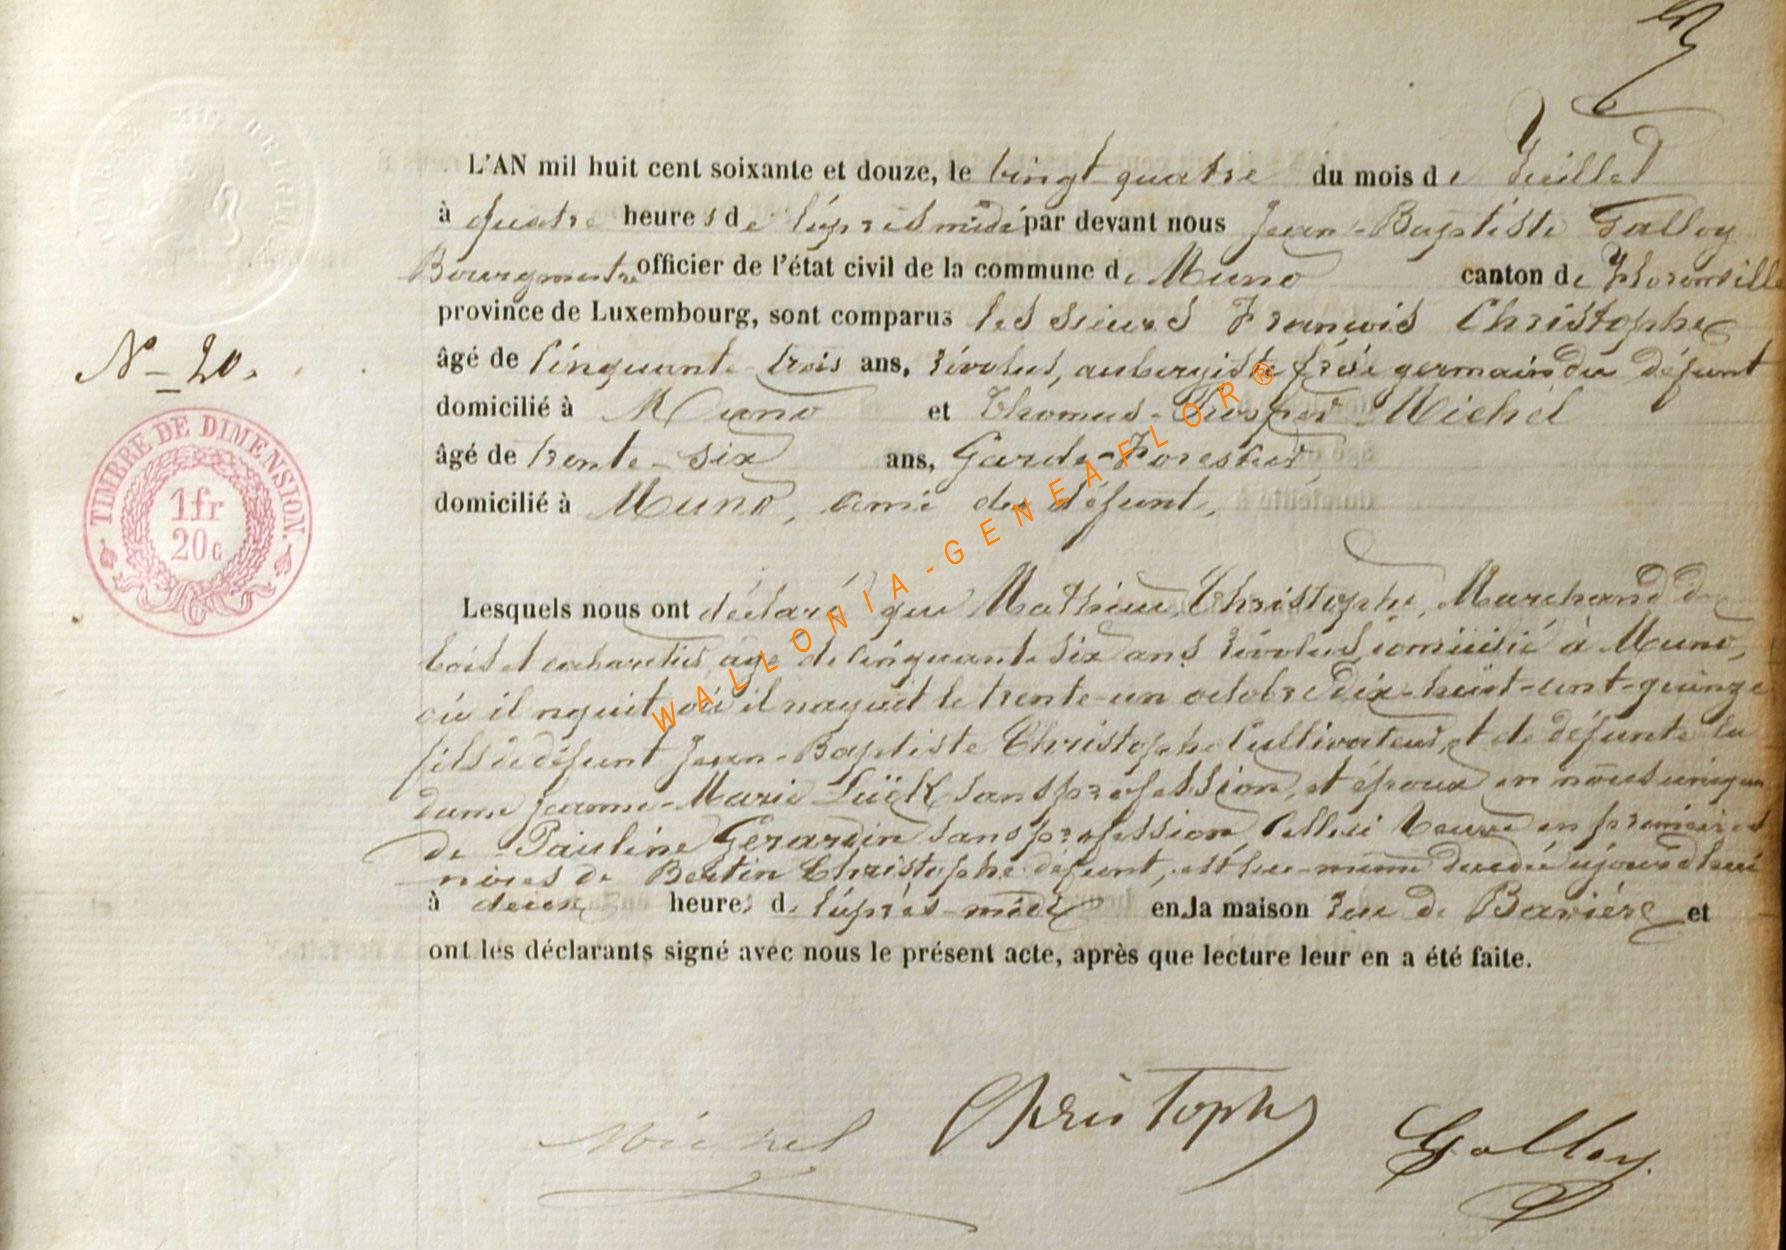 L'AN mil huit cent soixante et douze, le vingt quatre du mois de Juillet
à quatre heures de l'après midi par devant nous Jean-Baptiste Galloy
Bourgmestre officier de l'état civil de la commune de Muno canton de Florenville
province de Luxembourg, sont comparus les sieurs François Christophe
N° 20.
âgé de Cinquante trois ans, révolus, aubergiste frère germain du défunt
domicilié à Muno et Thomas-Prosper Michel
âgé de trente-six ans, Garde-Forestier
domicilié à Muno, ami du défunt,
TIMBRE DE DIMENSION.
1fr
20c
Lesquels nous ont déclaré que Mathieu Christophe, Marchand de
bois et cabaretier, agé de cinquante six ans révolus, domicilié à Muno,
où il nquit, où il naquit le trente-un octobre dix-huit-cent-quinze
fils de défunt Jean-Baptiste Christophe Cultivateur, et de défunte la
dame Jeanne-Marie Lück sans profession, et époux en
de Pauline Gerardin sans profession Celleci Veuve en premières
noces de Bertin Christophe défunt, est lui-même décédé ajourd'hui
à deux heures de l'après-midi en la maison rue de Bavière et
ont les déclarants signé avec nous le présent acte, après que lecture leur en a été faite.
WALLONIA-GENEAFLOR®
Michel Christophe Galloy